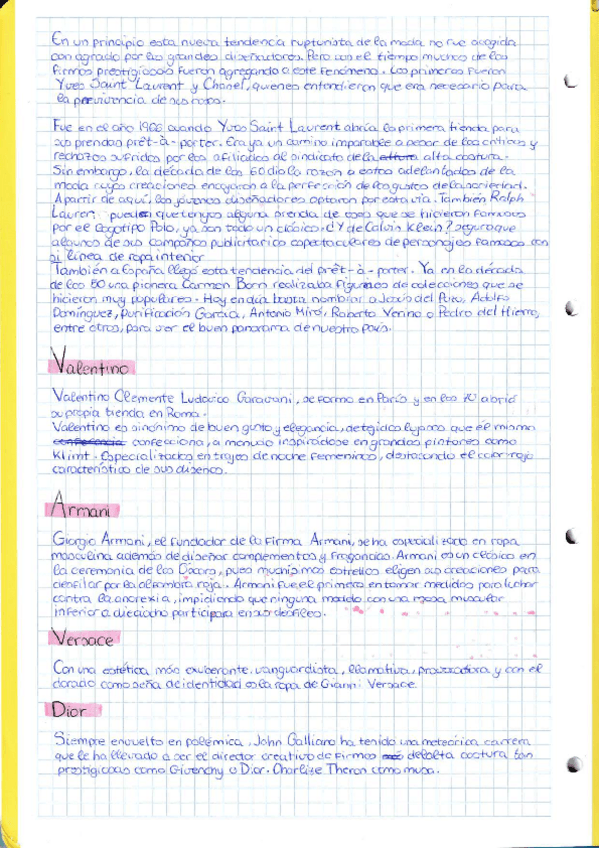 En un principio esta nueva tendencia rupturista de la moda no fue acogida
con agrado por los grandes diseñadores. Pero con el tiempo muchos de las
firmas prestigiosas fueron agregando a este fenómeno. Los primeros fueron
Yves Saint Laurent y Chanel, quienes entendieron que era necesario para
la pervivencia de sus
Fue en el año 1966 cuando Yves Saint Laurent abría la primera tienda para
sus prendas prêt-à-porter. Era ya un camino imparable a pesar de las críticas y
rechazos sufridos por los afiliados al sindicato de la altura alta costura.
Sin embargo, la década de los 60 dio la razón a estos adelantados de la
moda cuyas creaciones encajaron a la perfección de los gustos de la sociedad.
A partir de aquí, los jóvenes diseñadores optaron por esta vía. También Ralph
Lauren, puede que tengas alguna prenda de esas que se hicieron famosas
por el logotipo Polo, ya son todo un clásico. ¿Y de Calvin Klein? seguro que
algunas de sus campañas publicitarias espectaculares de personajes famosos con
su línea de ropa interior
También a España llegó esta tendencia del prêt-à-porter. Ya en la década
de los 50 una pionera Carmen Born realizaba figurines de colecciones que se
hicieron muy populares. Hoy en día basta nombrar a Jesús del Pozo, Adolfo
Domínguez, Purificación García, Antonio Miró, Roberto Verino o Pedro del Hierro,
entre otros, para ver el buen panorama de nuestro país.
Valentino
Valentino Clemente Ludovico Garavani, se formo en París y en los 70 abrió
su propia tienda en Roma.
Valentino es sinónimo de buen gusto y elegancia, de tejidos lujosos que él mismo
conferencia confecciona, a menudo inspirándose en grandes pintores como
Klimt. Especializados en trajes de noche femeninos, destacando el color rojo
característico de sus diseños.
Armani
Giorgio Armani, el fundador de la firma Armani, se ha especializado en ropa
masculina además de diseñar complementos y fragancias. Armani es un clásico en
la ceremonia de los Óscars, pues muchísimas estrellas eligen sus creaciones para
desfilar por la alfombra roja. Armani fue el primero en tomar medidas para luchar
contra la anorexia, impidiendo que ninguna modelo con una masa muscular
inferior a dieciocho participara en sus desfiles.
Versace
Con una estética más exuberante, vanguardista, llamativa, provocadora y con el
dorado como seña de identidad es la ropa de Gianni Versace.
Dior
Siempre envuelto en polémica, John Galliano ha tenido una meteórica carrera
que le ha llevado a ser el director creativo de firmas de alta costura tan
prestigiosas como Givenchy o Dior. Charlise Theron como musa.